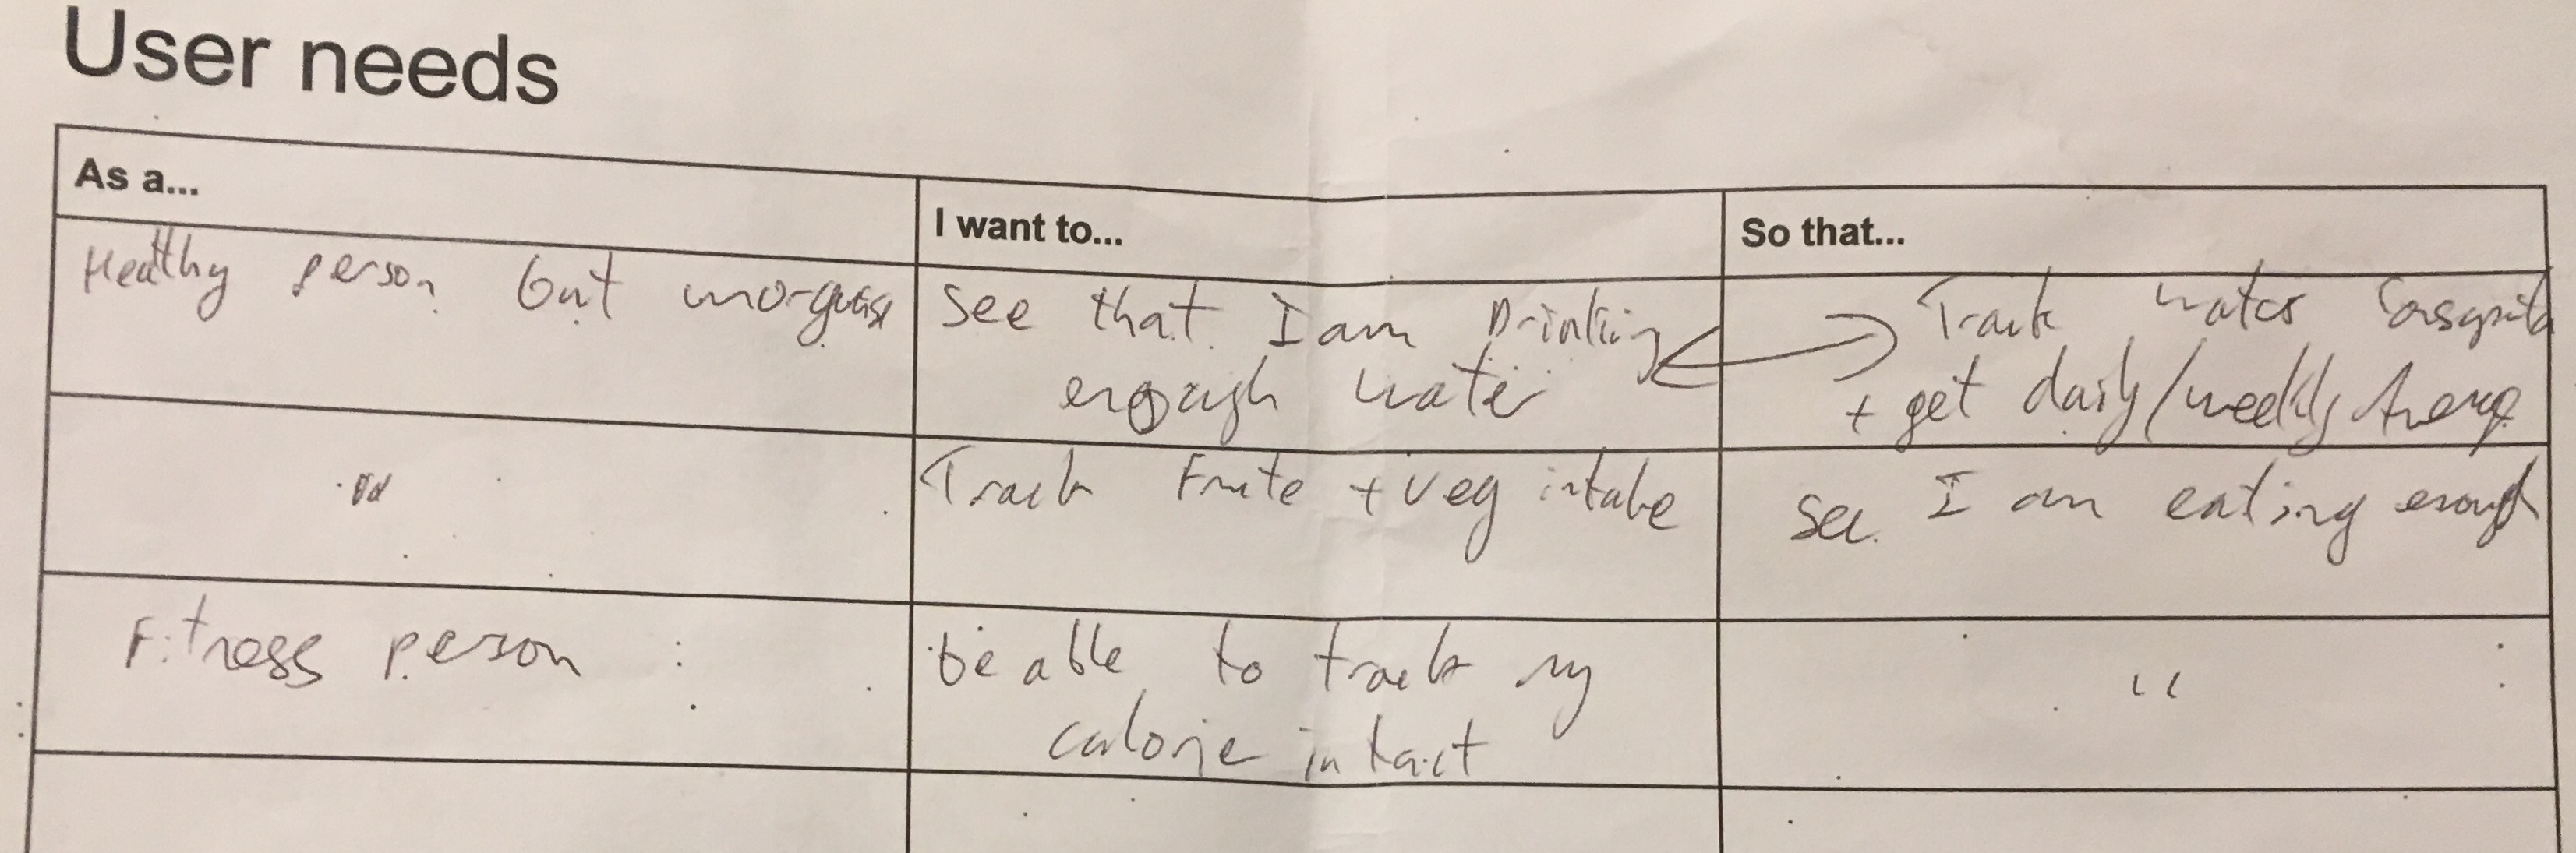 User needs
As a...
I want to...
So that...
Healthy person but
see that I am Drinking
enough water
Track water
+ get daily/weekly Average
"
Track Frute + veg intake
See I am eating enough
Fitness person :
be able to track my
calorie intact
"